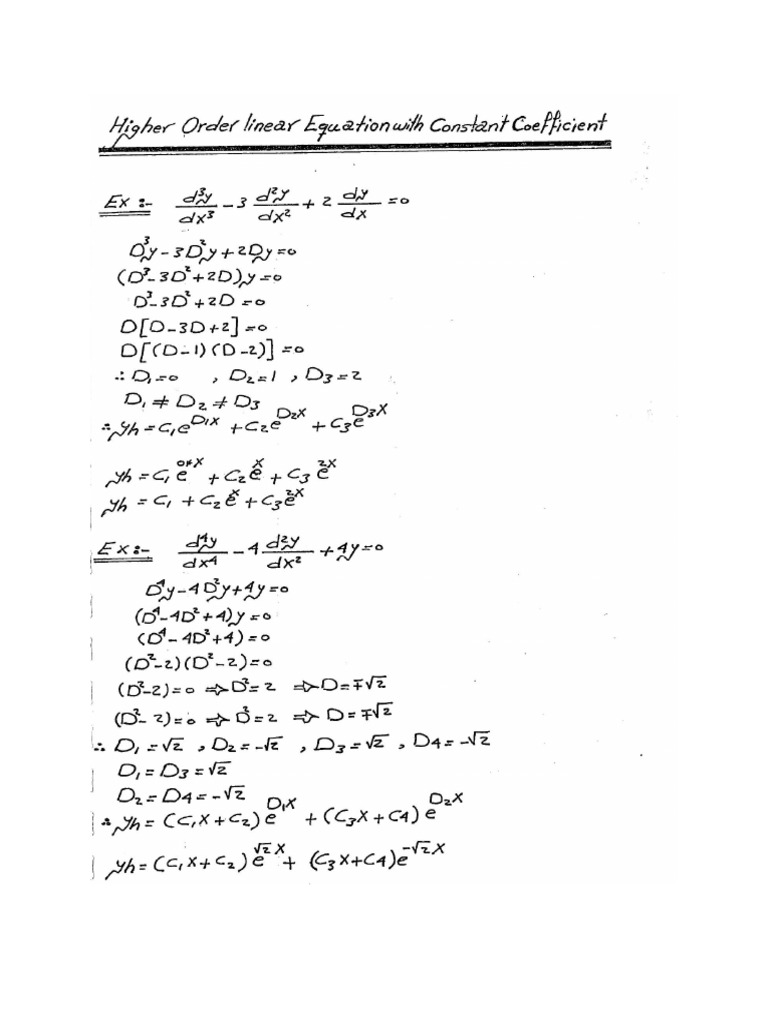 Higher Order linear Equation with Constant Coefficient
Ex :- d³y/dx³ - 3 d²y/dx² + 2 dy/dx = 0
D³y - 3D²y + 2Dy = 0
(D³ - 3D² + 2D)y = 0
D³ - 3D² + 2D = 0
D[D - 3D + 2] = 0
D[(D - 1)(D - 2)] = 0
∴ D₁ = 0 , D₂ = 1 , D₃ = 2
D₁ ≠ D₂ ≠ D₃
∴ yh = C₁e^D₁x + C₂e^D₂x + C₃e^D₃x
yh = C₁e^0*x + C₂e^x + C₃e^2x
yh = C₁ + C₂e^x + C₃e^2x
Ex :- d⁴y/dx⁴ - 4 d²y/dx² + 4y = 0
D⁴y - 4D²y + 4y = 0
(D⁴ - 4D² + 4)y = 0
(D⁴ - 4D² + 4) = 0
(D² - 2)(D² - 2) = 0
(D² - 2) = 0 ⇒ D² = 2 ⇒ D = ∓√2
(D² - 2) = 0 ⇒ D² = 2 ⇒ D = ∓√2
∴ D₁ = √2 , D₂ = -√2 , D₃ = √2 , D₄ = -√2
D₁ = D₃ = √2
D₂ = D₄ = -√2
∴ yh = (C₁x + C₂)e^D₁x + (C₃x + C₄)e^D₂x
yh = (C₁x + C₂)e^√2x + (C₃x + C₄)e^-√2x